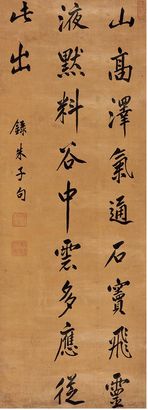 山高澤氣通石竇飛靈
液默料谷中雲多應從
此出
錄朱子句